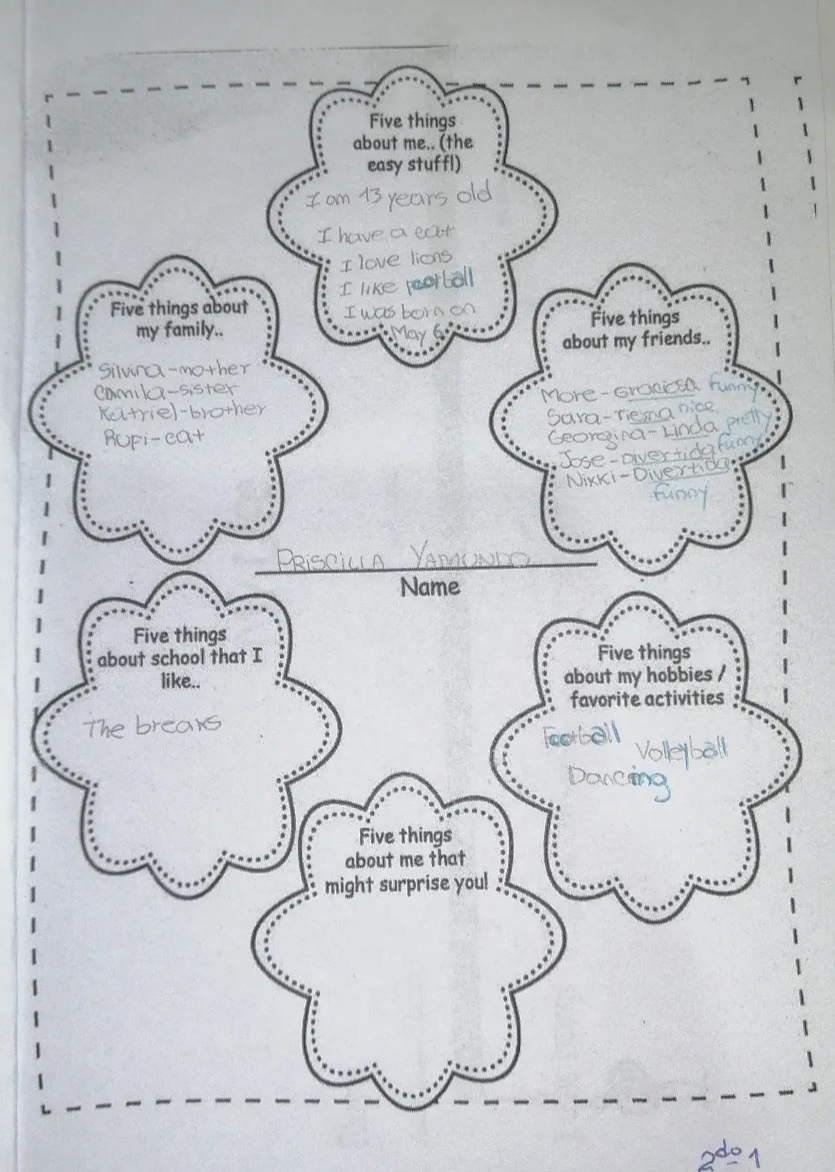 Five things
about me.. (the
easy stuff!)
I am 13 years old
I have a cat
I love lions
I like football
I was born on
May 6
Five things about
my family..
Silvina-mother
Camila-sister
Katriel-brother
Rupi-cat
Five things
about my friends..
More-Graciosa funny
Sara-Tierna nice
Georgina-Linda pretty
Jose-Divertida funny
Nikki-Divertida
funny
PRISCILLA YAMUNDO
Name
Five things
about school that I
like..
The breaks
Five things
about my hobbies /
favorite activities
Football
Volleyball
Dancing
Five things
about me that
might surprise you!
2do 1